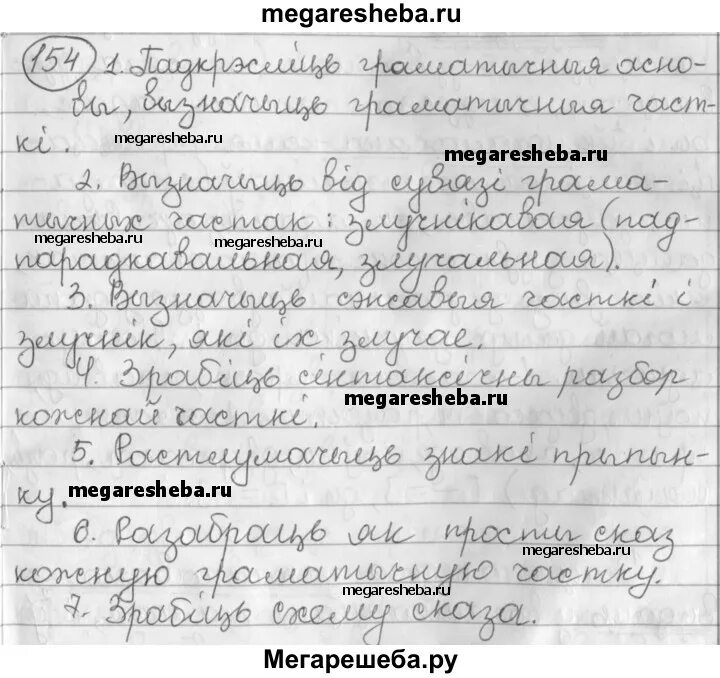 megaresheba.ru
154 1. Падкрэсліць граматычныя асно-
вы, вызначыць граматычныя част-
кі.
megaresheba.ru
megaresheba.ru
2. Вызначыць від сувязі грама-
тычных частак: злучнікавая (пад-
megaresheba.ru
megaresheba.ru
парадкавальная, злучальная).
3. Вызначыць сэнсавыя часткі і
злучнік, які іх злучае.
4. Зрабіць сінтаксічны разбор
кожнай часткі.
megaresheba.ru
5. Растлумачыць знакі прыпын-
ку.
megaresheba.ru
6. Разабраць як просты сказ
megaresheba.ru
кожную граматычную частку.
7. Зрабіць схему сказа.
megaresheba.ru
Мегарешеба.ру